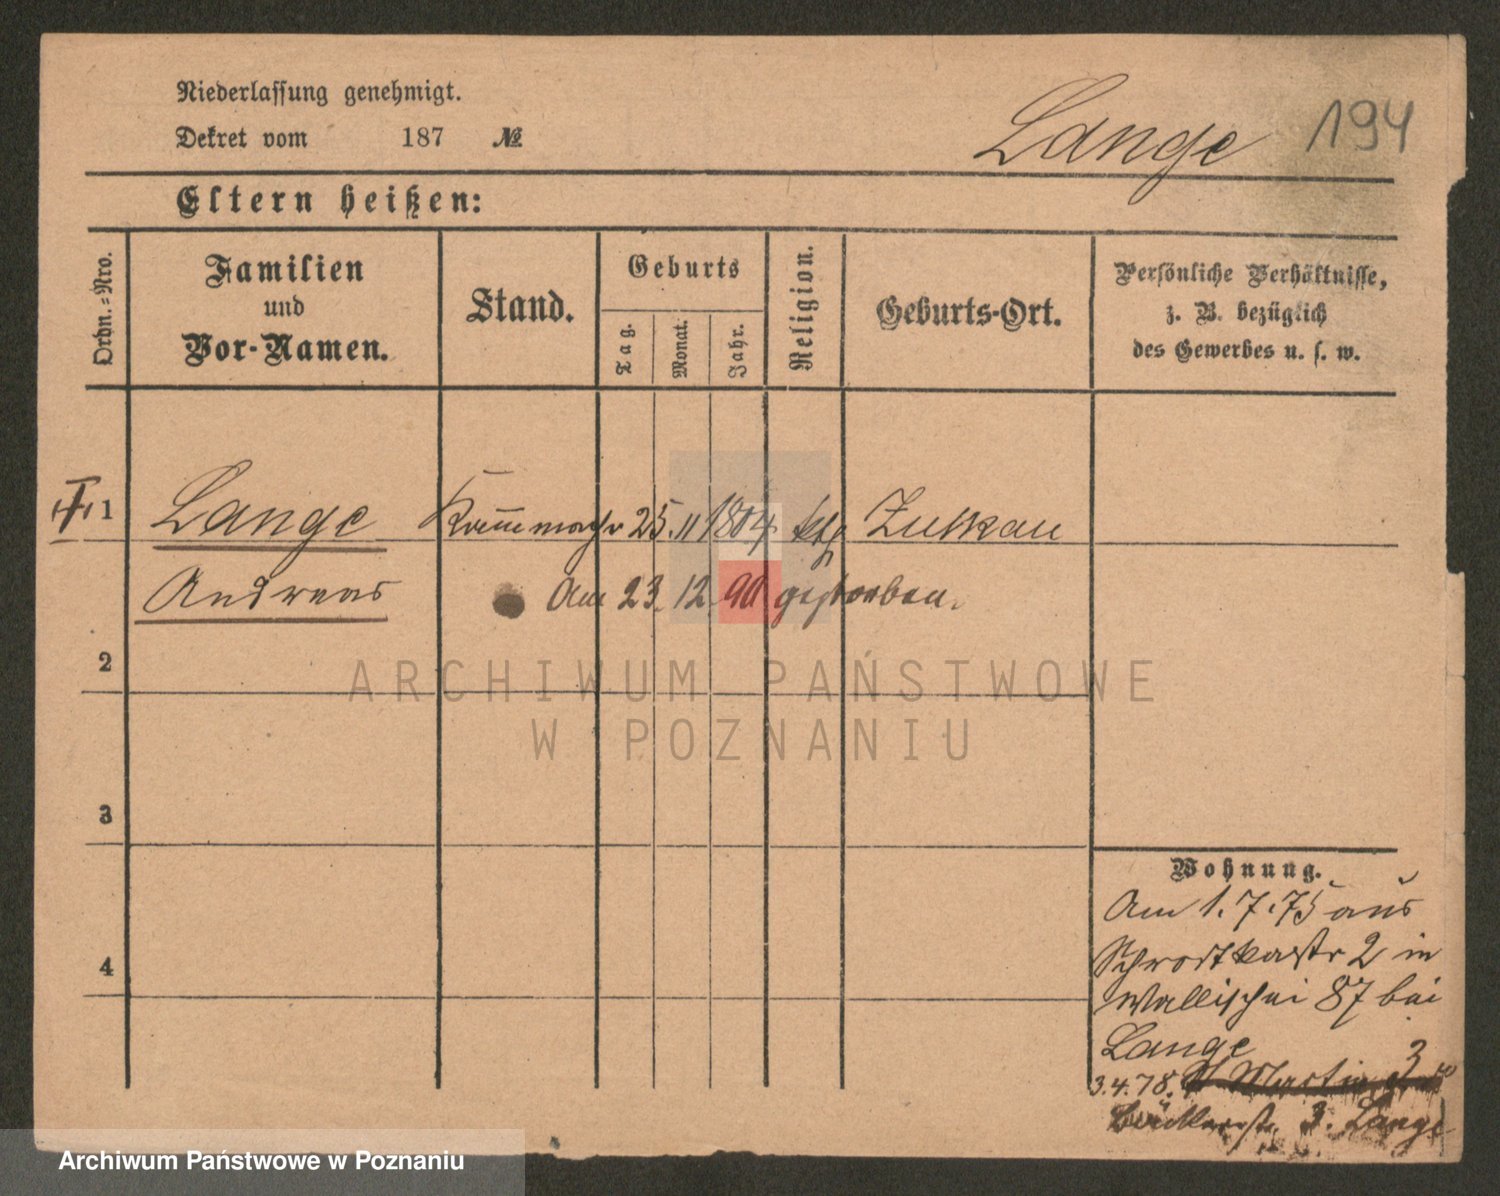 Niederlassung genehmigt.
Dekret vom 187 №
Lange 194
Eltern heißen:
Ordn.=Nro.
Familien
und
Vor-Namen.
Stand.
Geburts
Tag.
Monat.
Jahr.
Religion.
Geburts-Ort.
Persönliche Verhältnisse,
z. B. bezüglich
des Gewerbes u. s. w.
1 Lange Kammmachr 25. 11 1804 ktg
Andreas Am 23. 12. 90 gestorben.
2
3
4
Wohnung.
Am 1. 7. 75 aus
Schrodkastr 2 in
Wallischei 87 bei
Lange
3.4.78. St Martin 3
Bäckerstr. 3. Lange
ARCHIWUM PAŃSTWOWE
W POZNANIU
Archiwum Państwowe w Poznaniu